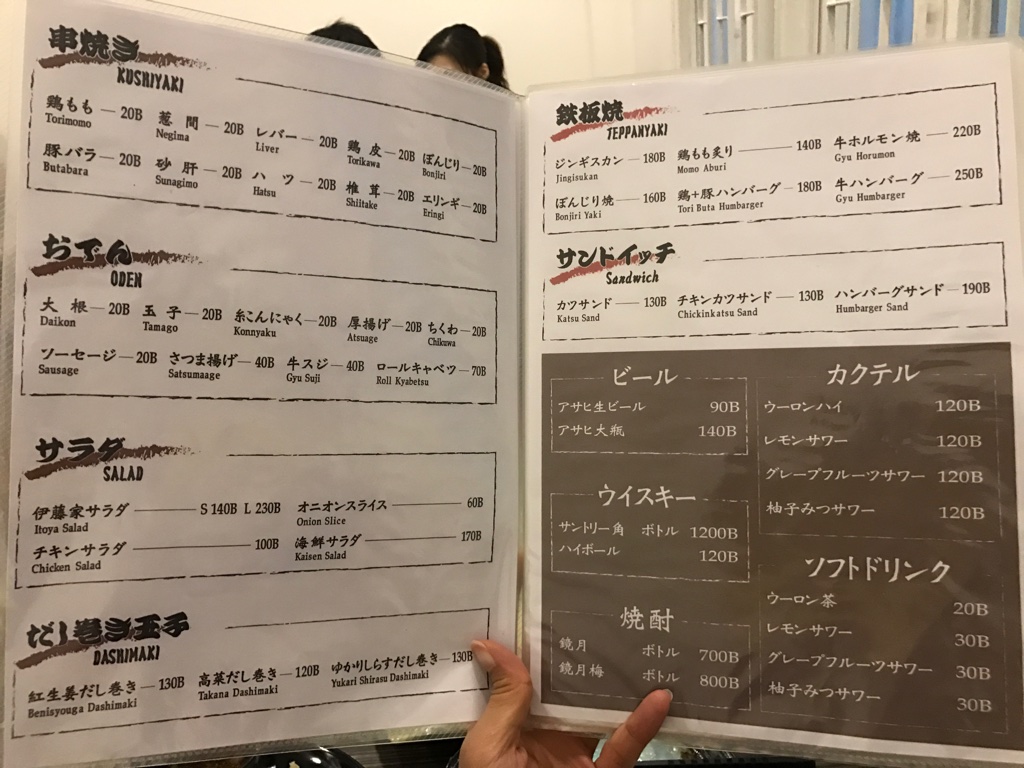 串焼き
KUSHIYAKI
鶏もも 20B 惹間 20B レバー 20B 鶏皮 20B ぼんじり 20B
Torimomo Negima Liver Torikawa Bonjiri
豚バラ 20B 砂肝 20B ハツ 20B 椎茸 20B エリンギ 20B
Butabara Sunagimo Hatsu Shiitake Eringi
おでん
ODEN
大根 20B 玉子 20B 糸こんにゃく 20B 厚揚げ 20B ちくわ 20B
Daikon Tamago Konnyaku Atsuage Chikuwa
ソーセージ 20B さつま揚げ 40B 牛スジ 40B ロールキャベツ 70B
Sausage Satsumaage Gyu Suji Roll Kyabetsu
サラダ
SALAD
伊藤家サラダ S 140B L 230B オニオンスライス 60B
Itoya Salad Onion Slice
チキンサラダ 100B 海鮮サラダ 170B
Chicken Salad Kaisen Salad
だし巻き玉子
DASHIMAKI
紅生姜だし巻き 130B 高菜だし巻き 120B ゆかりしらすだし巻き 130B
Benisyouga Dashimaki Takana Dashimaki Yukari Shirasu Dashimaki
鉄板焼
TEPPANYAKI
ジンギスカン 180B 鶏もも炙り 140B 牛ホルモン焼 220B
Jingisukan Momo Aburi Gyu Horumon
ぼんじり焼 160B 鶏+豚ハンバーグ 180B 牛ハンバーグ 250B
Bonjiri Yaki Tori Buta Humbarger Gyu Humbarger
サンドイッチ
Sandwich
カツサンド 130B チキンカツサンド 130B ハンバーグサンド 190B
Katsu Sand Chickinkatsu Sand Humbarger Sand
ビール
アサヒ生ビール 90B
アサヒ大瓶 140B
ウイスキー
サントリー角 ボトル 1200B
ハイボール 120B
焼酎
鏡月 ボトル 700B
鏡月梅 ボトル 800B
カクテル
ウーロンハイ 120B
レモンサワー 120B
グレープフルーツサワー 120B
柚子みつサワー 120B
ソフトドリンク
ウーロン茶 20B
レモンサワー 30B
グレープフルーツサワー 30B
柚子みつサワー 30B